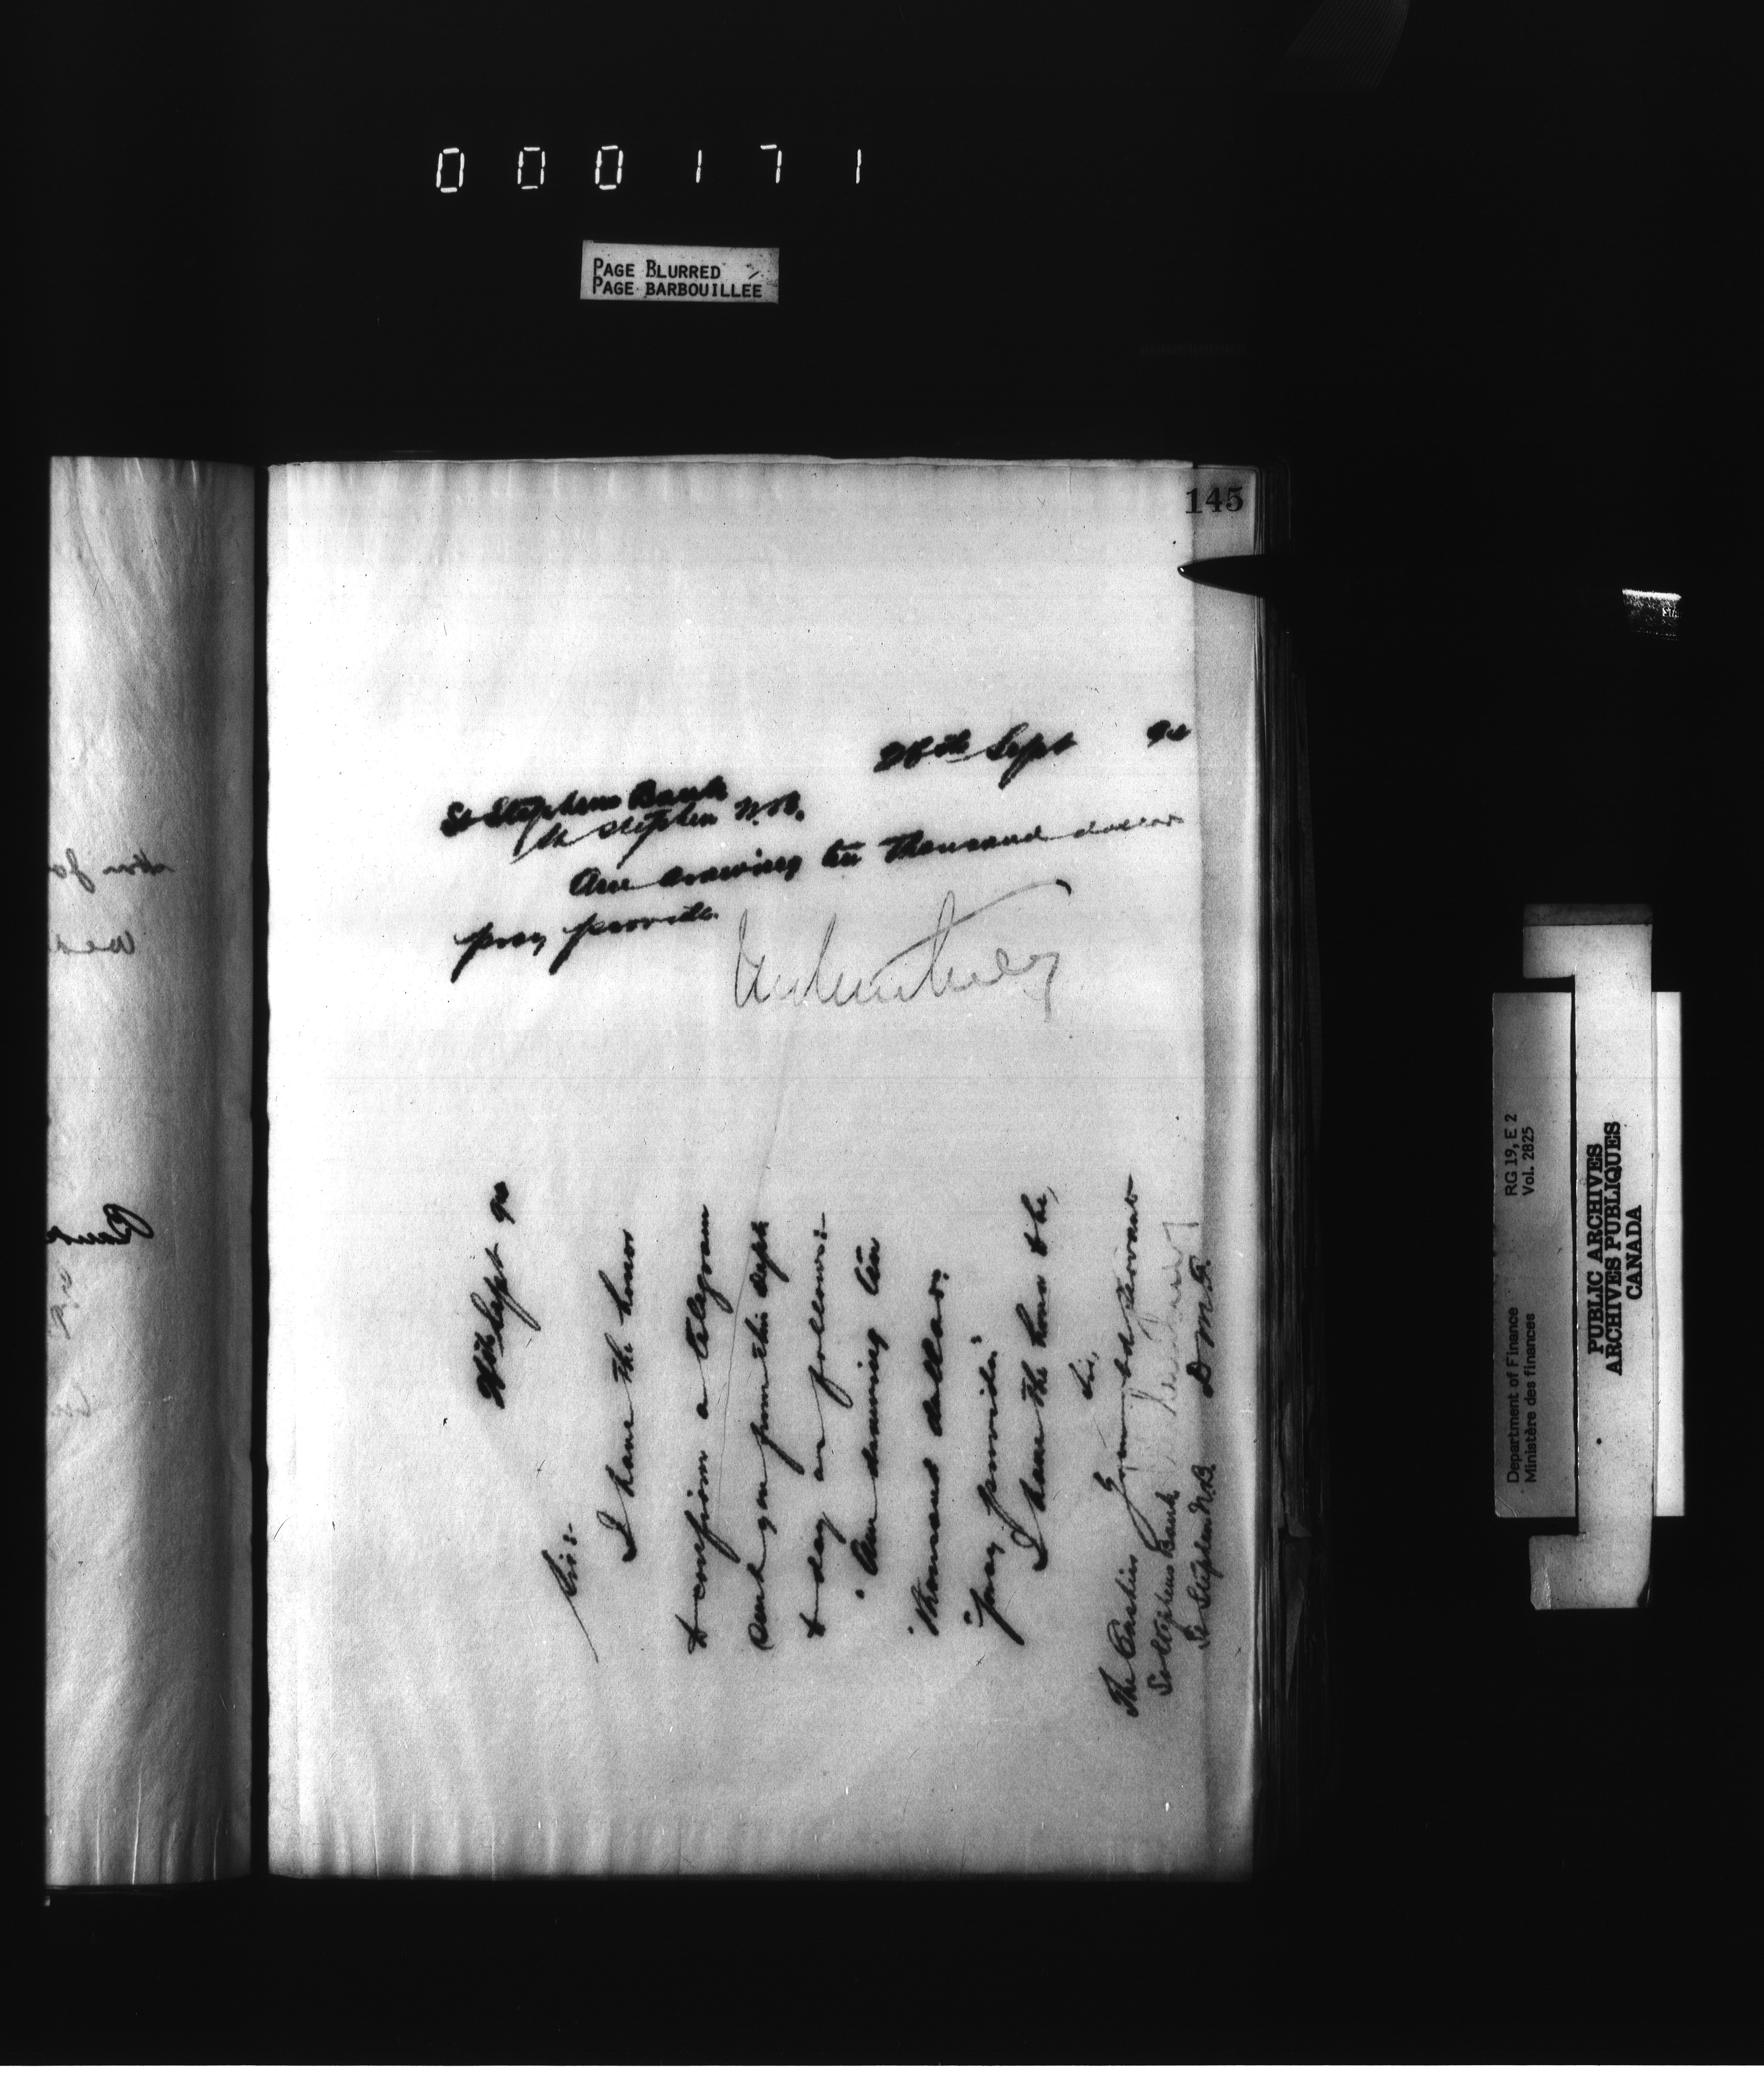 000171
PAGE BLURRED
PAGE BARBOUILLEE
145
26th Sept 90
St Stephens Bank
St Stephen N.B.
Am drawing ten thousand dollars
pray provide.
26th Sept 90
Sir:-
I have the honor
to confirm a telegram
sent you from this Dept
to day as follows:-
"Am drawing ten
"thousand dollars.
"pray provide."
I have the honor to be,
Sir,
Your obd servant
The Cashier
St Stephens Bank
St Stephen N.B.
D.M.F.
Department of Finance
Ministère des finances
RG 19, E 2
Vol. 2825
PUBLIC ARCHIVES
ARCHIVES PUBLIQUES
CANADA